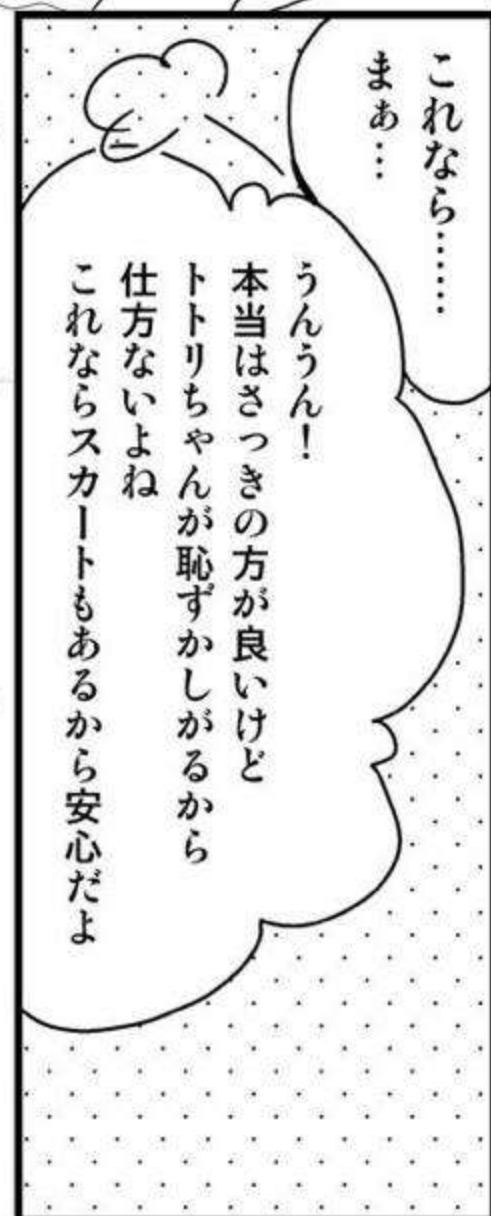 これなら……
まぁ…
うんうん！
本当はさっきの方が良いけど
トトリちゃんが恥ずかしがるから
仕方ないよね
これならスカートもあるから安心だよ